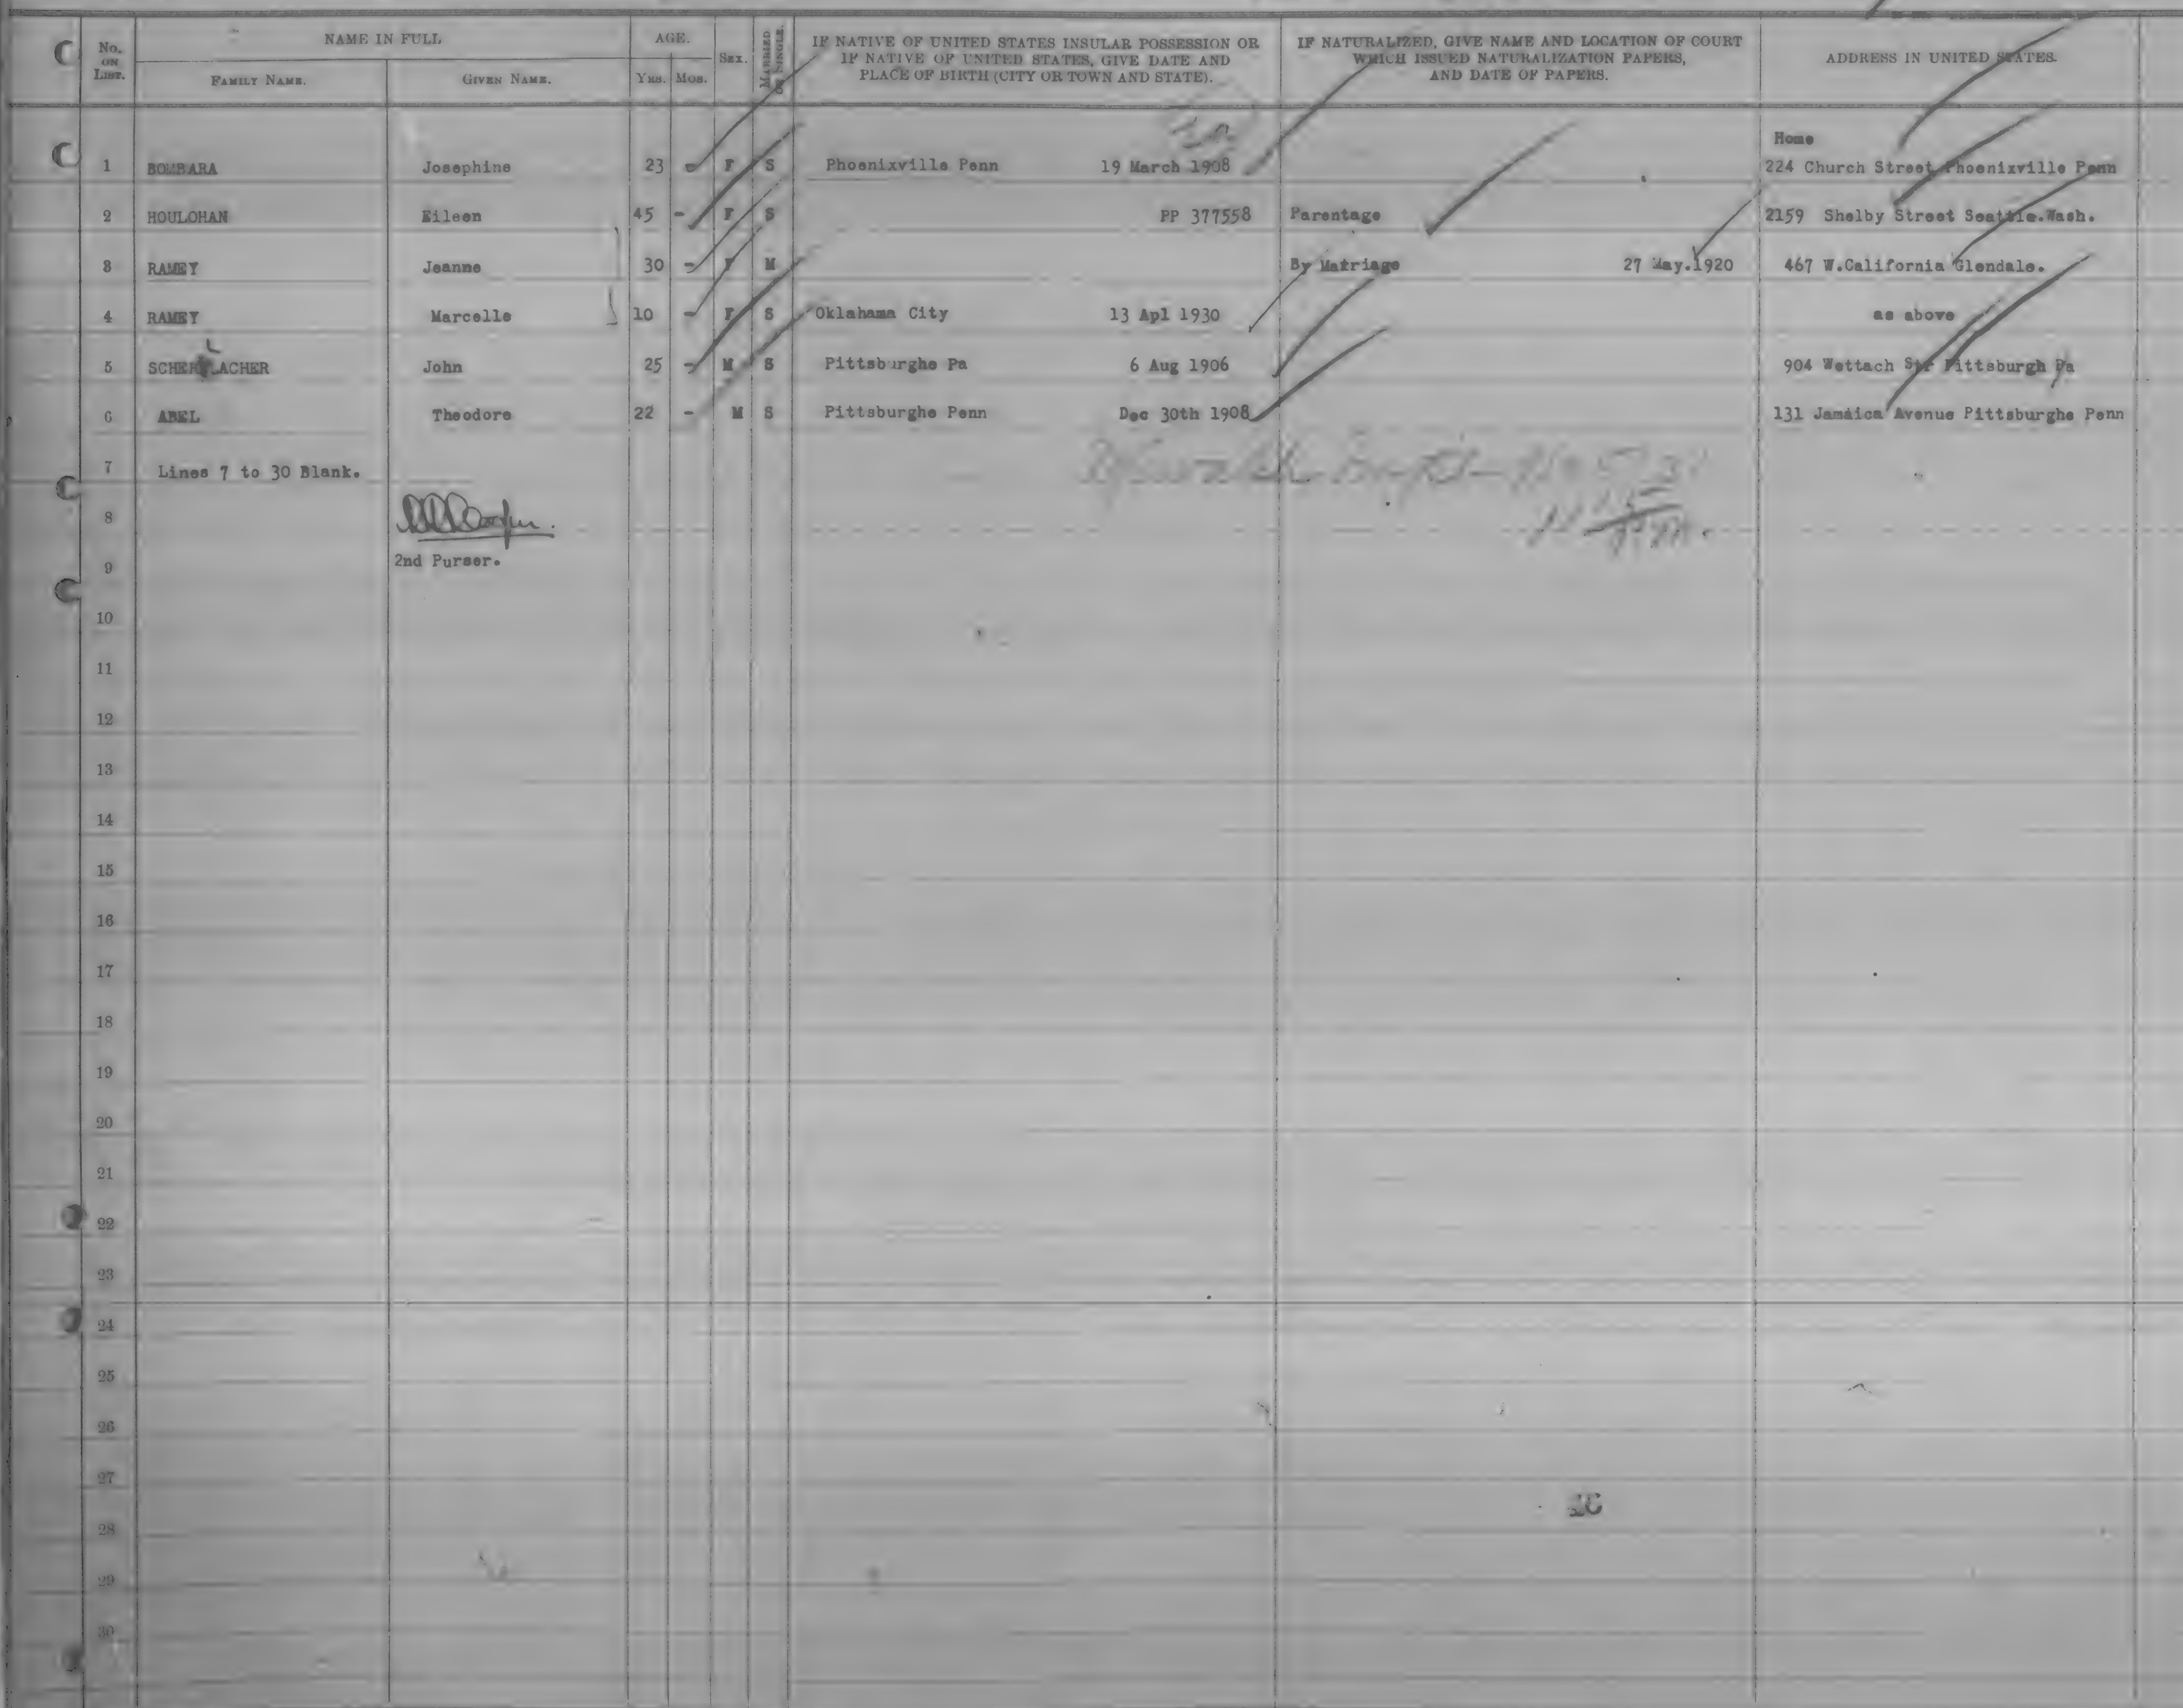 NAME IN FULL
AGE.
No. ON LIST.
FAMILY NAME.
GIVEN NAME.
YRS.
MOS.
SEX.
MARRIED OR SINGLE.
IF NATIVE OF UNITED STATES INSULAR POSSESSION OR
IF NATIVE OF UNITED STATES, GIVE DATE AND
PLACE OF BIRTH (CITY OR TOWN AND STATE).
IF NATURALIZED, GIVE NAME AND LOCATION OF COURT
WHICH ISSUED NATURALIZATION PAPERS,
AND DATE OF PAPERS.
ADDRESS IN UNITED STATES.
Home
1 BOMBARA Josephine 23 - F S Phoenixville Penn 19 March 1908 224 Church Street Phoenixville Penn
2 HOULOHAN Eileen 45 - F S PP 377558 Parentage 2159 Shelby Street Seattle.Wash.
3 RAMEY Jeanne 30 - F M By Marriage 27 May.1920 467 W.California Glendale.
4 RAMEY Marcelle 10 - F S Oklahama City 13 Apl 1930 as above
5 SCHERLACHER John 25 - M S Pittsburghe Pa 6 Aug 1906 904 Wettach Str Pittsburgh Pa
6 ABEL Theodore 22 - M S Pittsburghe Penn Dec 30th 1908 131 Jamaica Avenue Pittsburghe Penn
7 Lines 7 to 30 Blank.
8
9 2nd Purser.
10
11
12
13
14
15
16
17
18
19
20
21
22
23
24
25
26
27
28
29
30